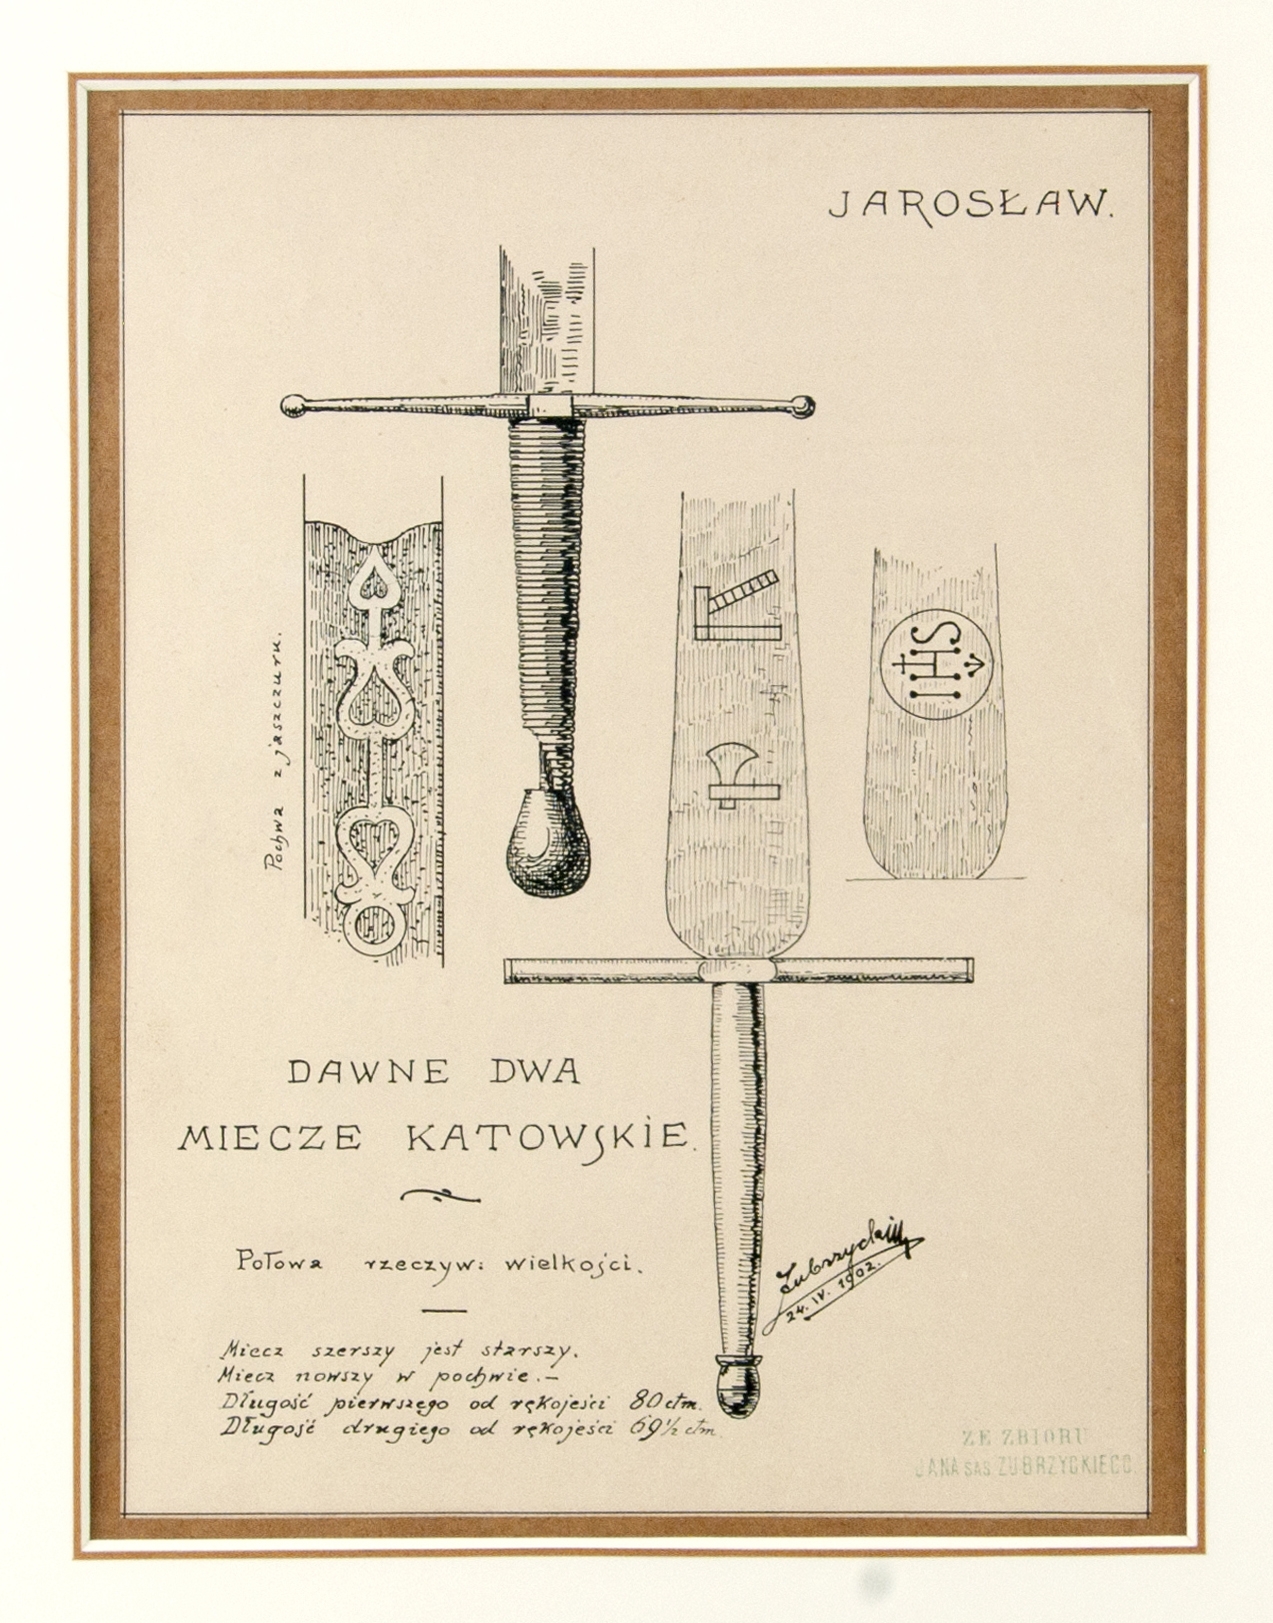 JAROSŁAW.
Pochwa z jaszczuru.
IHS
DAWNE DWA
MIECZE KATOWSKIE.
Połowa rzeczyw: wielkości.
Miecz szerszy jest starszy.
Miecz nowszy w pochwie.—
Długość pierwszego od rękojeści 80 ctm.
Długość drugiego od rękojeści 69½ ctm.
Zubrzycki
24. IV. 1902.
ZE ZBIORU
JANA SAS ZUBRZYCKIEGO